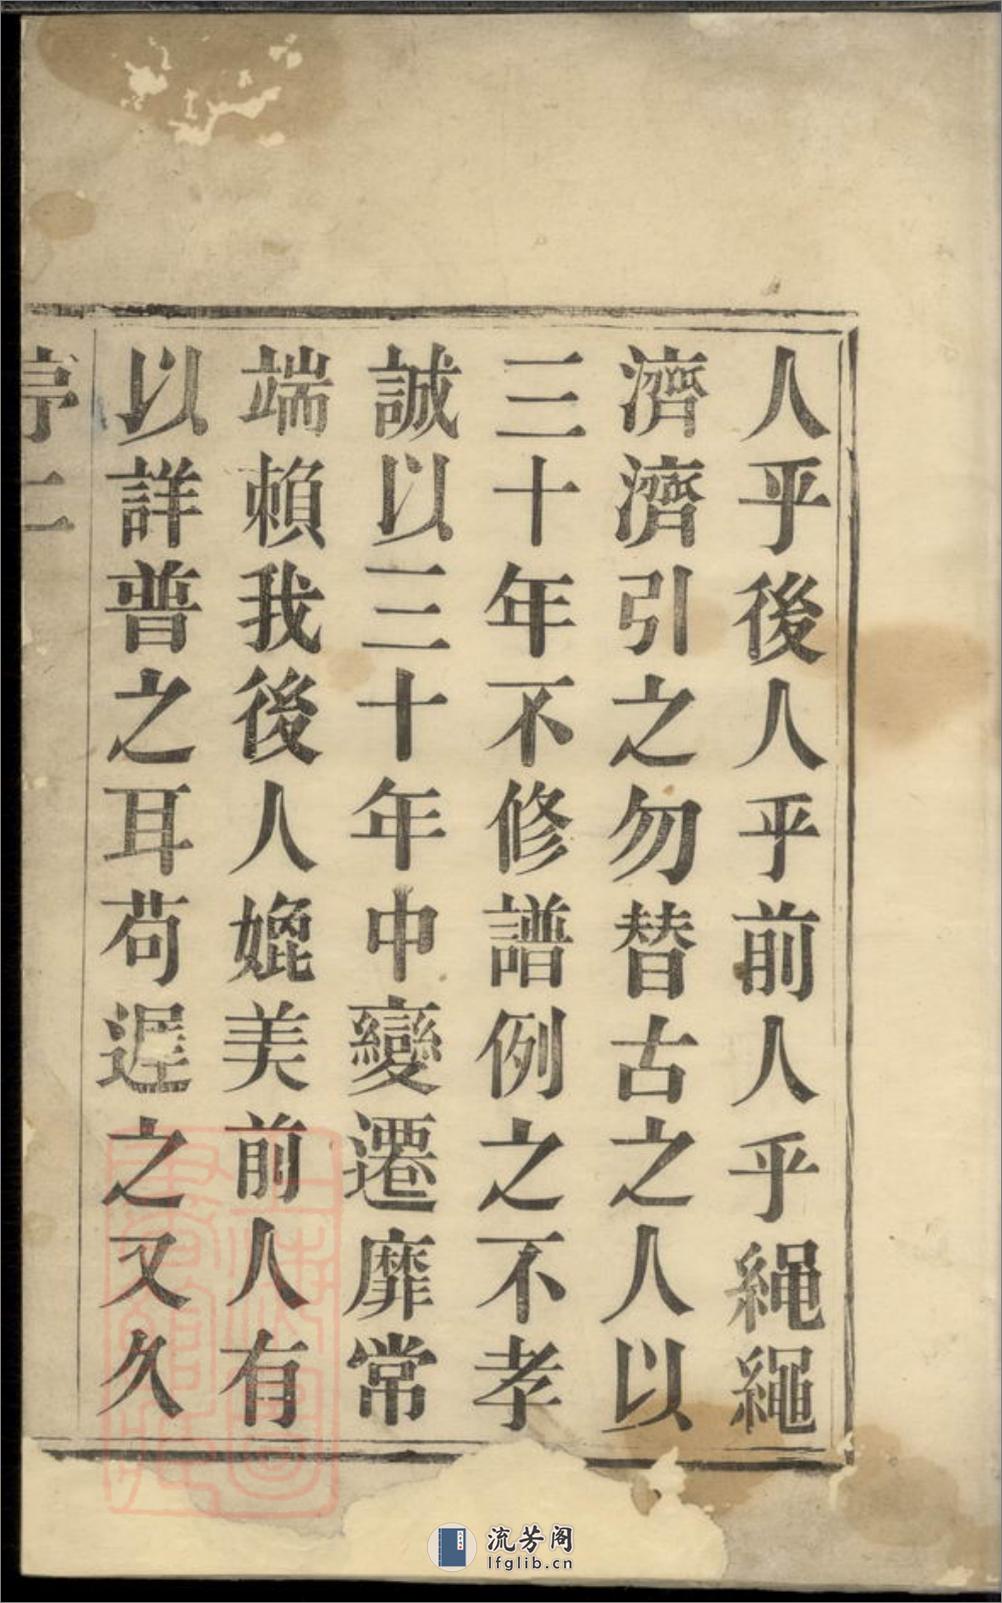 人乎後人乎前人乎繩繩
濟濟引之勿替古之人以
三十年不修譜例之不孝
誠以三十年中變遷靡常
端賴我後人媲美前人有
以詳普之耳苟遲之又久
序二
流芳阁
lfglib.cn